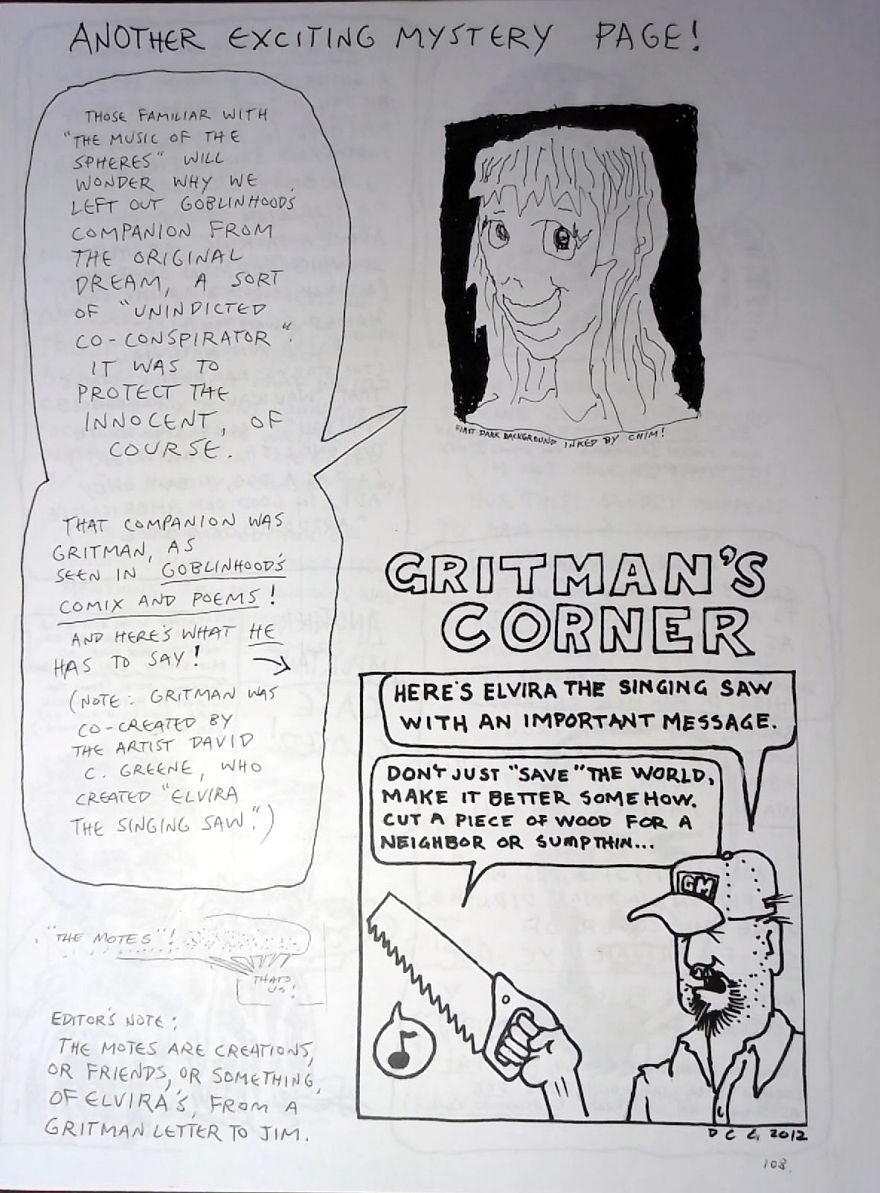 ANOTHER EXCITING MYSTERY PAGE!
THOSE FAMILIAR WITH
"THE MUSIC OF THE
SPHERES" WILL
WONDER WHY WE
LEFT OUT GOBLINHOOD'S
COMPANION FROM
THE ORIGINAL
DREAM, A SORT
OF "UNINDICTED
CO-CONSPIRATOR".
IT WAS TO
PROTECT THE
INNOCENT, OF
COURSE.
THAT COMPANION WAS
GRITMAN, AS
SEEN IN GOBLINHOOD'S
COMIX AND POEMS!
AND HERE'S WHAT HE
HAS TO SAY! →
(NOTE: GRITMAN WAS
CO-CREATED BY
THE ARTIST DAVID
C. GREENE, WHO
CREATED "ELVIRA
THE SINGING SAW.")
"THE MOTES"!
THAT'S
US!
EDITOR'S NOTE:
THE MOTES ARE CREATIONS,
OR FRIENDS, OR SOMETHING,
OF ELVIRA'S, FROM A
GRITMAN LETTER TO JIM.
FIRST DARK BACKGROUND INKED BY CHIM!
GRITMAN'S
CORNER
HERE'S ELVIRA THE SINGING SAW
WITH AN IMPORTANT MESSAGE.
DON'T JUST "SAVE" THE WORLD,
MAKE IT BETTER SOMEHOW.
CUT A PIECE OF WOOD FOR A
NEIGHBOR OR SUMPTHIN...
GM
D C G 2012
108.